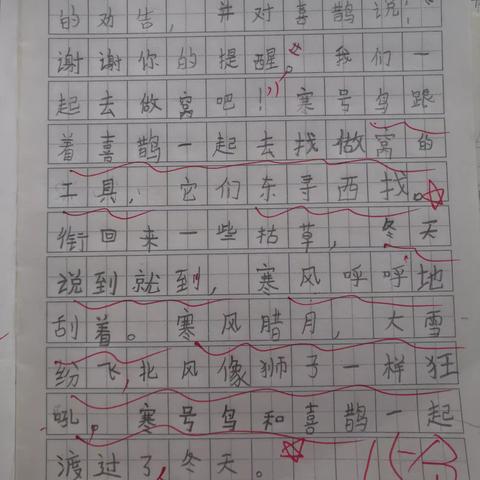 的劝告，并对喜鹊说：“
谢谢你的提醒。我们一
起去做窝吧！”寒号鸟跟
着喜鹊一起去找做窝的
工具，它们东寻西找。
衔回来一些枯草，冬天
说到就到，寒风呼呼地
刮着。寒风腊月，大雪
纷飞，北风像狮子一样狂
吼，寒号鸟和喜鹊一起
渡过了冬天。